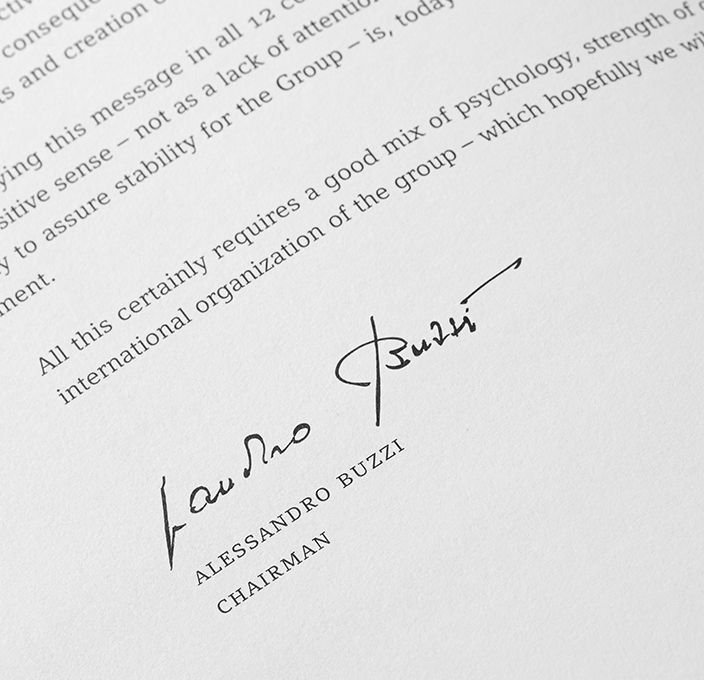 consequ
s and creation
ying this message in all 12 co
sitive sense – not as a lack of attentio
y to assure stability for the Group – is, today
ment.
All this certainly requires a good mix of psychology, strength of
international organization of the group – which hopefully we wil
Sandro Buzzi
ALESSANDRO BUZZI
CHAIRMAN